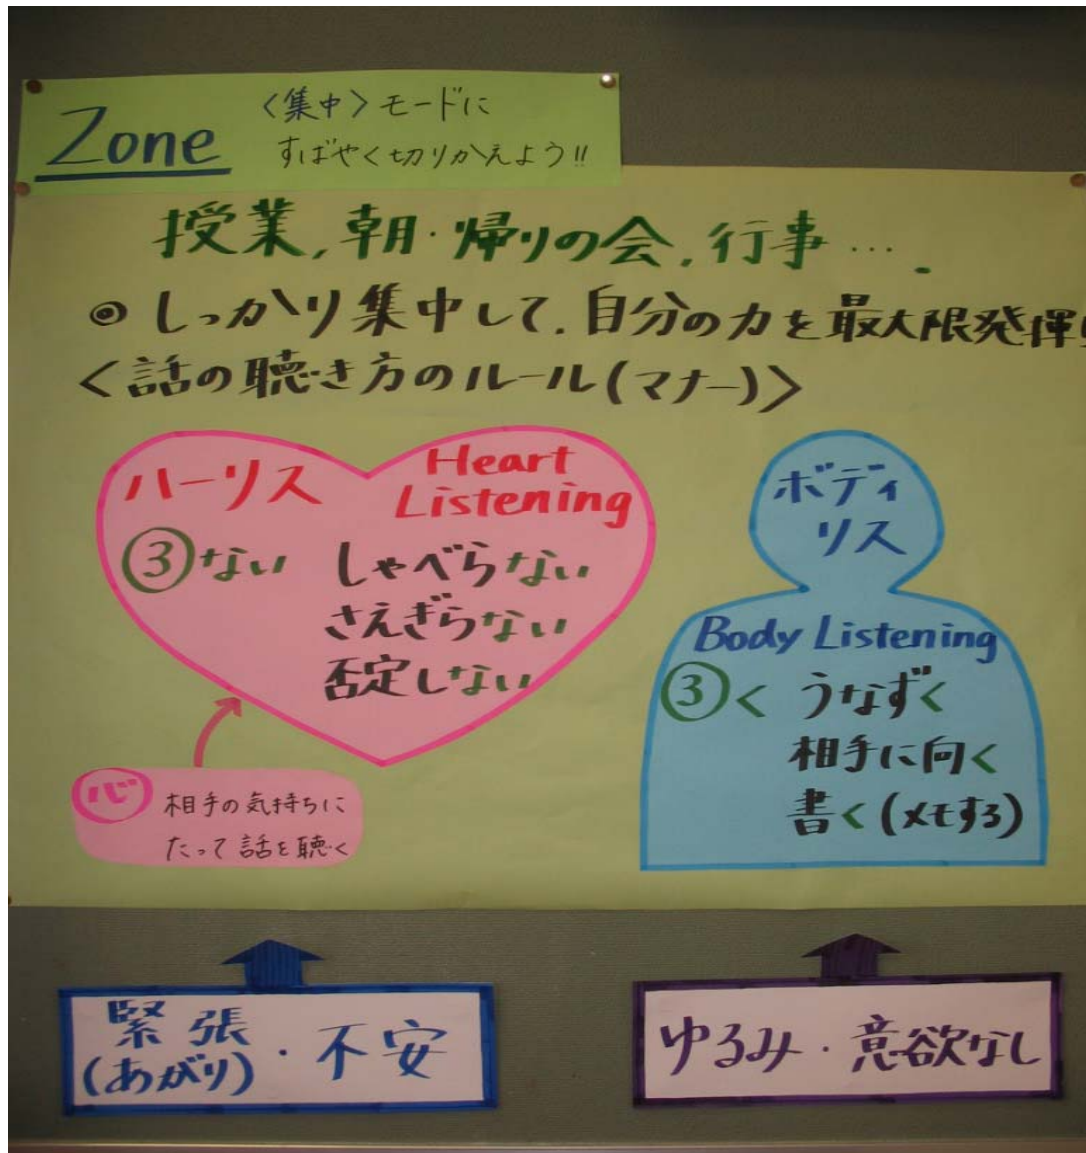 Zone
〈集中〉モードに
すばやく切りかえよう!!
授業,朝・帰りの会,行事….
◎しっかり集中して.自分の力を最大限発揮
<話の聴き方のルール(マナー)>
ハーリス
Heart
Listening
③ない しゃべらない
さえぎらない
否定しない
心 相手の気持ちに
たって話を聴く
ボディ
リス
Body Listening
③く うなずく
相手に向く
書く(メモする)
緊張
(あがり)・不安
ゆるみ・意欲なし